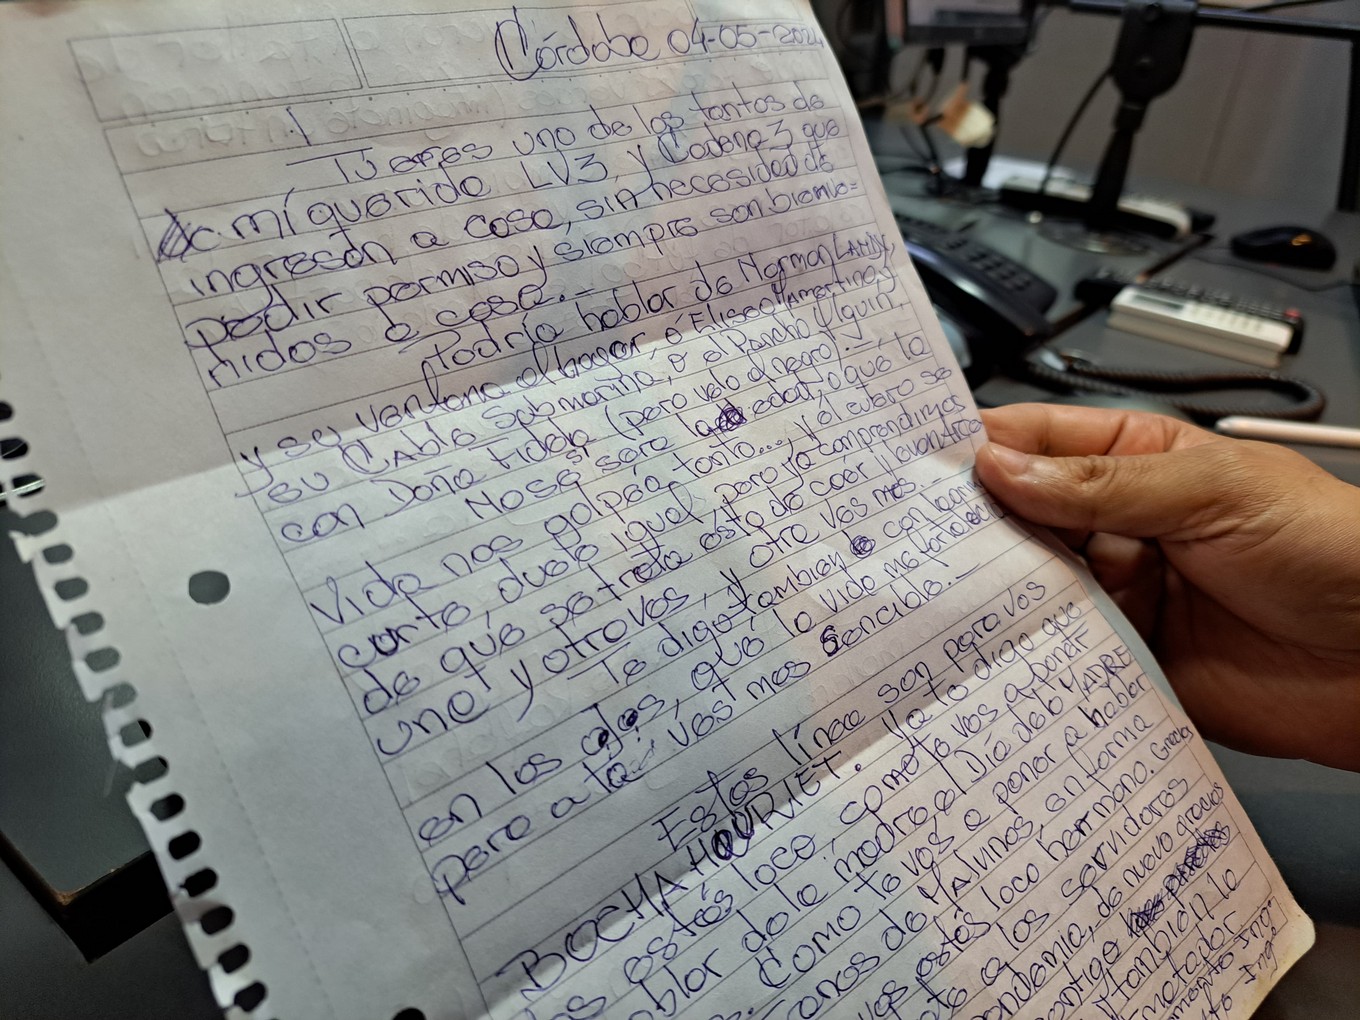 Córdoba 04-05-2024
Tú eres uno de los tantos de
mí querido LV3 y Cadena 3 que
ingresan a casa, sin necesidad de
pedir permiso y siempre son bienve=
nidos a casa.-
Podría hablar de Norman LANDI,
y su ventana al hogar, o Eliseo Yamartino, y
su CABle Submarino, o el Pancho Ulguin
con Doña Fidela (pero velo al negro).-
No sé sí será la edad, o qué la
vida nos golpea tanto..., y el cuero se
curte, duele igual pero ya comprendimos
de qué se trata ésto de caer levantarse
uno y otra vos, y otra vos mas.-
Te digo también con lagrimas
en los ojos, qué la vida me
para a tá vos mas Sencible.-
Estas línea son para vos
BOCHA HOURIET. Ya te digo que
vos estás loco, como te vas a poner
hablar de la madre, el Día de la MADRE
Como te vas a poner a hablar
de Malvinas, en forma
vos estás loco hermano. Gracias
a los servidores
pandemia, de nuevo gracias
contigo
y tambien lo